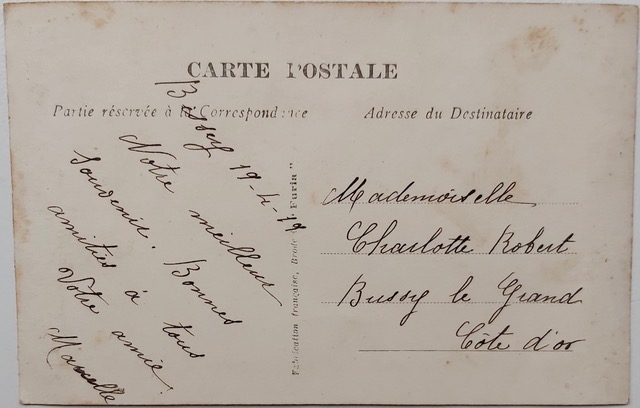 CARTE POSTALE
Partie réservée à la Correspondance
Adresse du Destinataire
Bissey 19-4-19
Notre meilleur
souvenir. Bonnes
amitiés à tous
Votre amie.
Marcelle
Mademoiselle
Charlotte Robert
Bussy le Grand
Côte d'or
Fabrication française, Brodé "Furia"